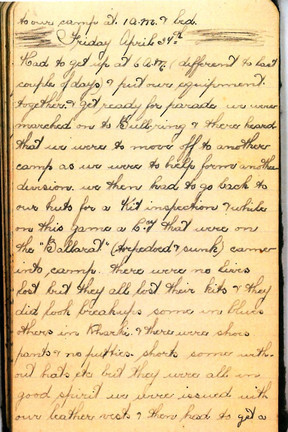 to our camp at 1 A.M. & bed.
Friday April 27th
Had to get up at 6 A.M. (different to last
couple of days & put our equipment
together & get ready for parade we were
marched on to Bullring & there heard
that we were to move off to another
camp as we were to help form another
division. we then had to go back to
our huts for a Kit inspection & while
on this game a Coy that were on
the "Ballarat" (torpedoed & sunk) came
into camp. there were no lives
lost but they all lost their kits & they
did look breakups some in blues
others in Kharki. & there were shoes
pants & no putties. shorts some with-
out hats etc but they were all in
good spirit we were issued with
our leather vests & then had to get a